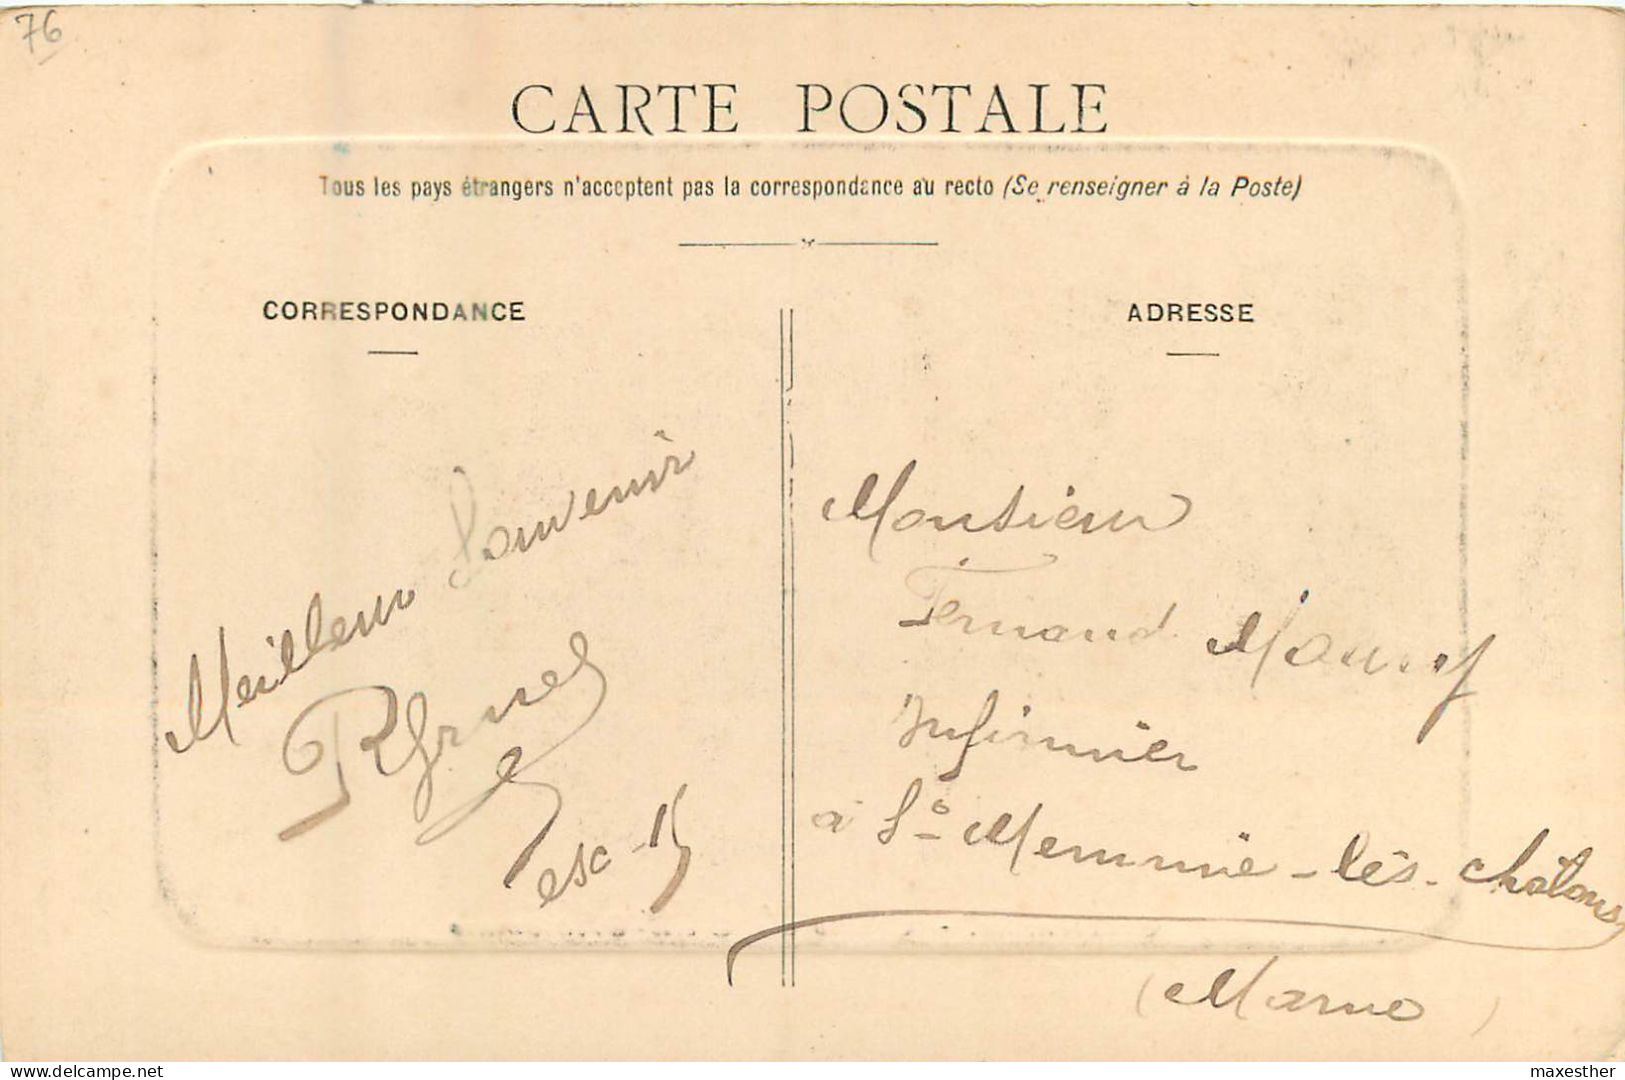 76
CARTE POSTALE
Tous les pays étrangers n'acceptent pas la correspondance au recto (Se renseigner à la Poste)
CORRESPONDANCE
ADRESSE
Meilleur Souvenir
esc - 15
Monsieur
Fernand
Infirmier
à St Memmie - lès - Châlons
(Marne)
Delcampe.net
maxesther